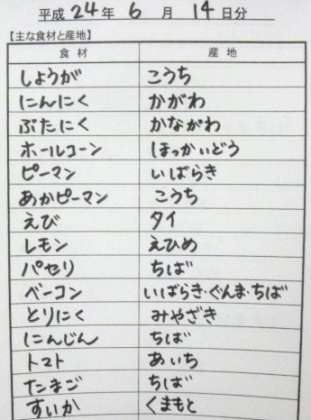 平成 24 年 6 月 14 日分
【主な食材と産地】
食材 産地
しょうが こうち
にんにく かがわ
ぶたにく かながわ
ホールコーン ほっかいどう
ピーマン いばらき
あかピーマン こうち
えび タイ
レモン えひめ
パセリ ちば
ベーコン いばらき・ぐんま・ちば
とりにく みやざき
にんじん ちば
トマト あいち
たまご ちば
すいか くまもと